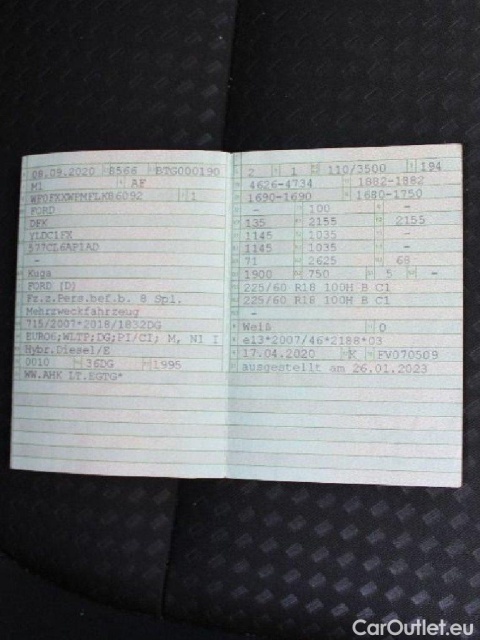 08.09.2020 8566 BTG000190
M1 AF
1
FORD
DFK
577CL6AP1AD
-
Kuga
FORD (D)
Fz.z.Pers.bef.b. 8 Spl.
Mehrzweckfahrzeug
715/2007*2018/1832DG
EURO6;WLTP;DG;PI/CI; M, NI I
Hybr.Diesel/E
0010 36DG 1995
WW.AHK LT.EGTG*
2 1 110/3500 194
4626-4734 1882-1882
1690-1690 1680-1750
- 100 -
135 2155 2155
1145 1035 -
1145 1035 -
71 2625 68
1900 750 5 -
225/60 R18 100H B C1
225/60 R18 100H B C1
-
Weiß 0
e13*2007/46*2188*03
17.04.2020 K FV070509
ausgestellt am 26.01.2023
CarOutlet.eu